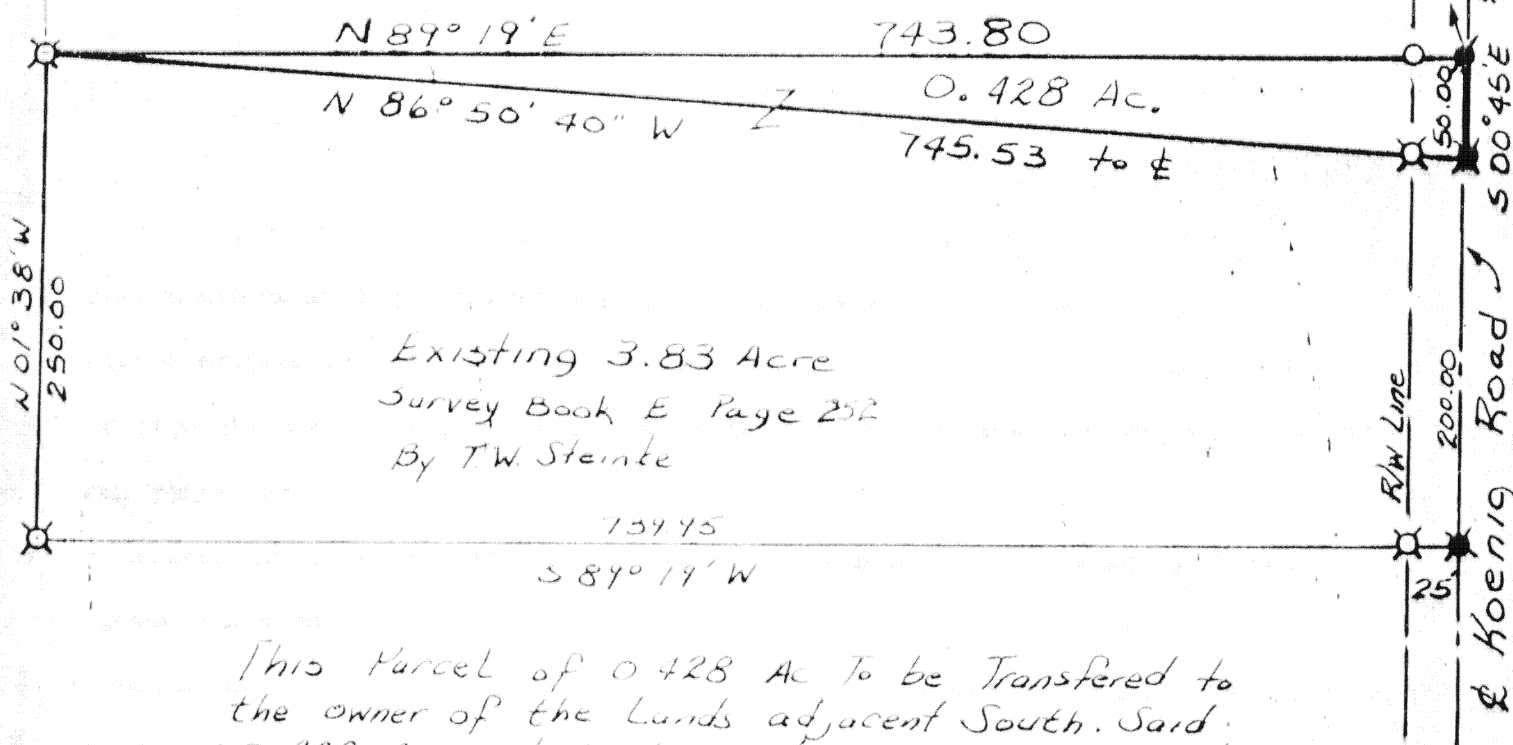 N 89° 19' E 743.80
0.428 Ac.
N 86° 50' 40" W
745.53 to ℄
50.00
S 00° 45' E
N 01° 38' W
250.00
Existing 3.83 Acre
Survey Book E Page 252
By T.W. Steinke
R/W Line
200.00
℄ Koenig Road
S 89° 19' W
25'
This Parcel of 0.428 Ac To be Transfered to
the owner of the Lands adjacent South. Said